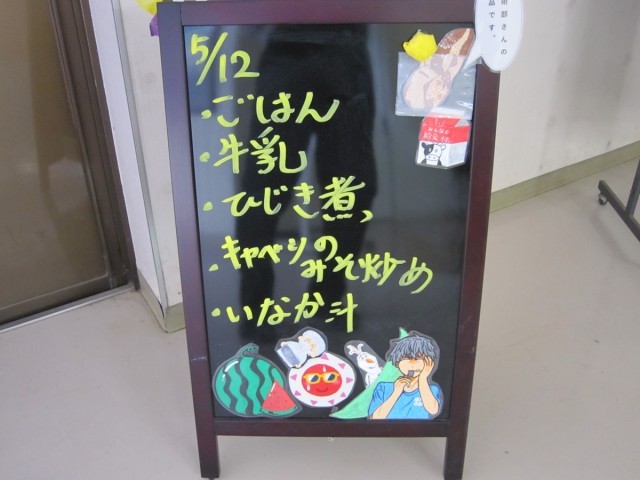 5/12
・ごはん
・牛乳
・ひじき煮
・キャベツの
みそ炒め
・いなか汁
品です。